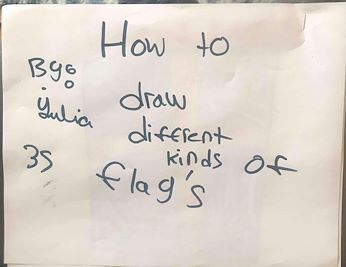 How to
By:
Yulia
draw
different
kinds of
flag's
35